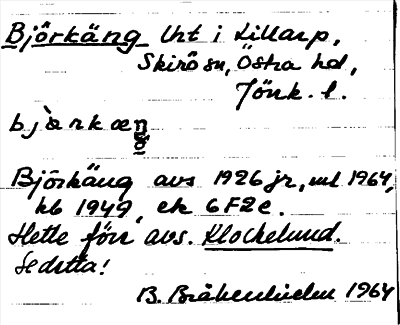 Björkäng Uht i Lillarp,
Skirö sn, Östra hd,
Jönk. l.
bjärkæŋ
Björkäng avs 1926 jr, ml 1964,
kb 1949, ek 6F2e.
Hette förr avs. Klockelund.
Se detta!
B. 1964